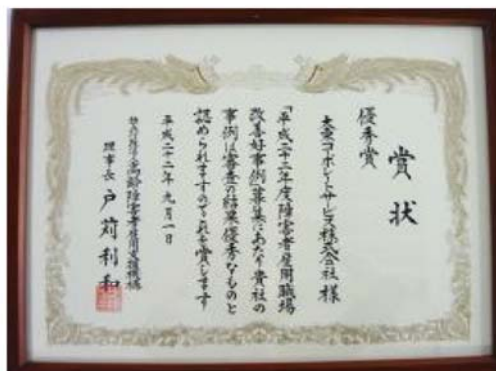 賞状
優秀賞
大東コーポレートサービス株式会社 様
「平成二十二年度障害者雇用職場
改善好事例」募集にあたり貴社の
事例は審査の結果優秀なものと
認められますのでこれを賞します
平成二十二年九月一日
独立行政法人高齢・障害者雇用支援機構
理事長 戸苅利和